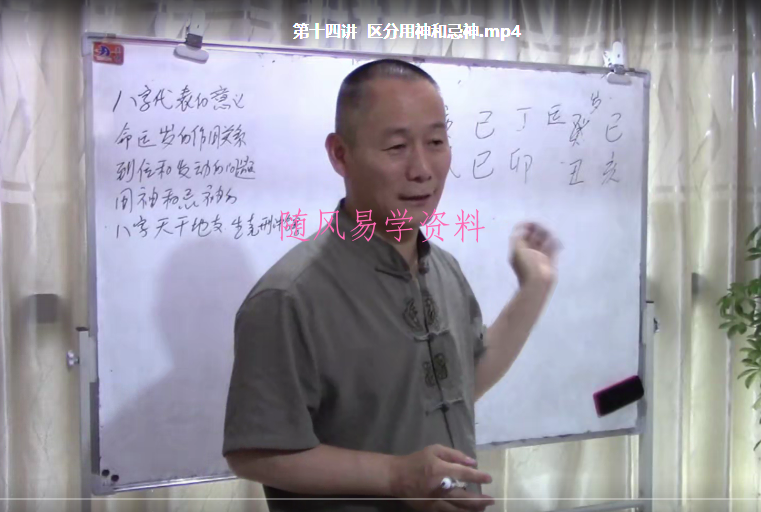 第十四讲 区分用神和忌神.mp4
八字代表的意义
命运岁的作用关系
到位和发动的问题
用神和忌神的
八字天干地支生克刑冲
岁
己 丁 运 癸 己
巳 卯 丑 亥
随风易学资料